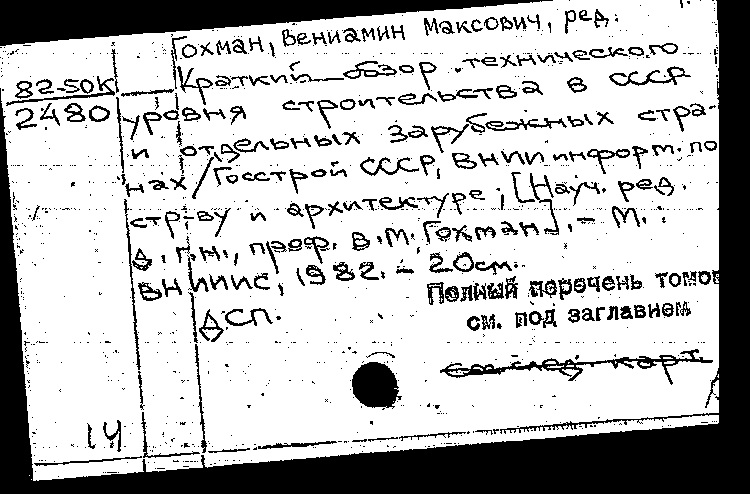 Гохман, Вениамин Максович, ред.
82-50К Краткий обзор технического
2480 уровня строительства в СССР
и отдельных зарубежных стра-
нах/Госстрой СССР, ВНИИ информ. по
стр-ву и архитектуре; [Науч. ред.
д. г.н., проф. В.М. Гохман]. – М.:
ВНИИИС, 1982. – 20см.
Полный перечень томов
см. под заглавием
ДСП.
См. след. карт
14